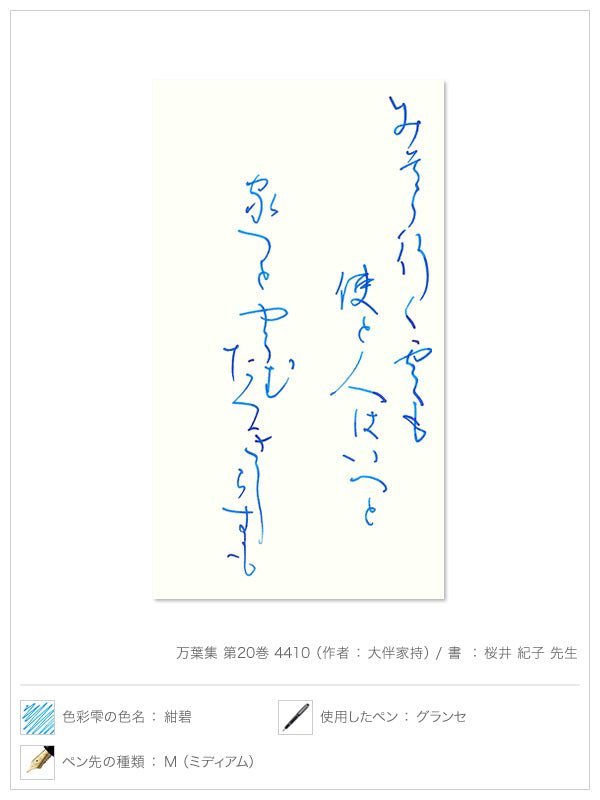 みそら行く雲も
使と人はいへと
家つとやらむ
たつきしらすも
万葉集 第20巻 4410 (作者 : 大伴家持) / 書 : 桜井 紀子 先生
色彩雫の色名 : 紺碧
使用したペン : グランセ
ペン先の種類 : M (ミディアム)